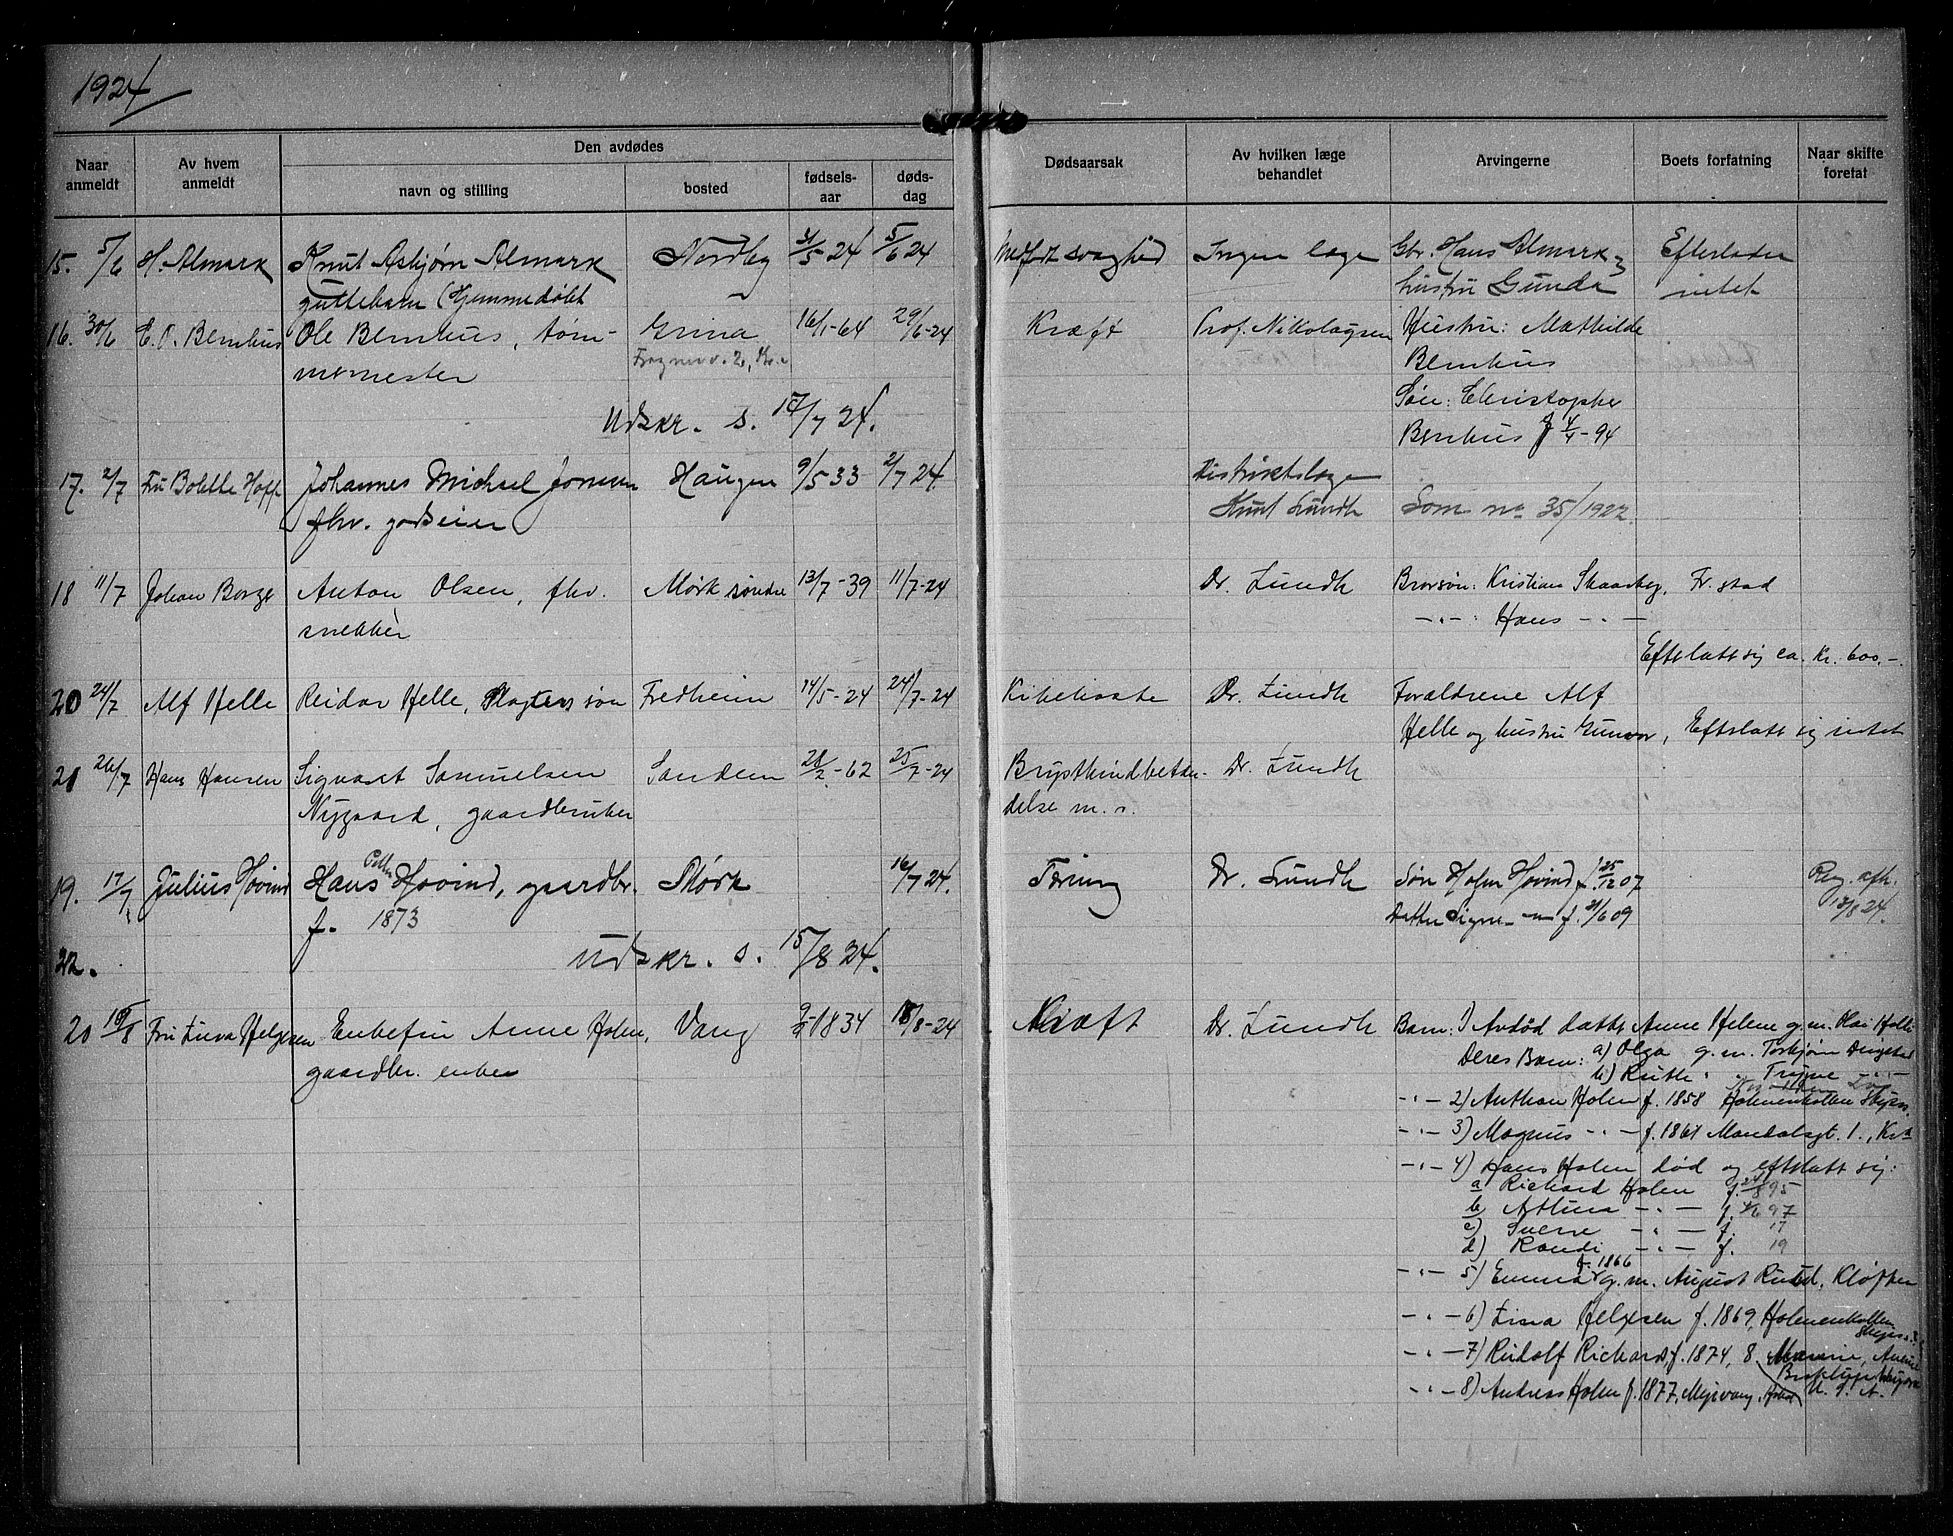 1924
Naar anmeldt | Av hvem anmeldt | Den avdødes | Dødsaarsak | Av hvilken læge behandlet | Arvingerne | Boets forfatning | Naar skifte foretat
navn og stilling | bosted | fødsels-aar | døds-dag
15. 5/6 H. Almark Knut Asbjørn Almark Nordby 31/5 24 5/6 24 Medfødt svaghed Ingen læge Gbr. Hans Almark Efterlader
guttebarn (hjemmedøbt hustru Gunda intet
16. 30/6 E. O. Bernhus Ole Bernhus, tøm- Grina 16/1-64 29/6-24 Kræft Prof. Nikolaysen Hustru: Mathilde
mermester Frognerv. 2, Bernhus
Søn: Christopher
Udskr. s. 17/7 24. Bernhus f 4-94
17. 2/7 Fru Bolette Hoff Johannes Michael Jonsen Haugen 9/5 33 2/7 24 Distriktslæge
fhv. godseier Knut Lundh Som no 35/1922.
18 11/7 Johan Borge Anton Olsen, fhv. Mørk søndre 13/7-39 11/7-24 Dr. Lundh Brorsøn: Kristian Skaarberg, Fr.stad
snekker -„- : Hans -„-
Efterlatt sig ca. kr. 600.-
20 24/7 Alf Helle Reidar Helle, søn Fredheim 14/5-24 24/7-24 Kikhoste Dr. Lundh Forældrene Alf
Helle og hustru Gunvor, Efterlatt sig intet
21 26/7 Hans Hansen Sigvart Samuelsen Sandem 28/2-62 25/7-24 Brysthindebetæn- Dr. Lundh
Nygaard, gaardbruker delse m. s.
19. 17/7 Julius Hovind Hans Hovind, gaardbr. Mørk 16/7 24. Tæring Dr. Lundh Søn Holm Hovind f. 25/12 07 Reg. afh.
f. 1873 Datter Signe -„- f. 21/6 09 12/8 24.
22. Udskr. s. 15/8 24.
20 19/8 Fru Lina Helgesen Enkefru Anne Holen, Vang 1834 18/8-24 Kræft Dr. Lundh Barn: 1) Avdød datter Anne Helene g. m.
gaardbr. enke Deres Barn: a) Olga g. m. Torbjørn
b) Ruth „ Trygve -„-
-„- 2) Anthon Holen f. 1858 Holmenkollen
-„- 3) Magnus -„- f. 1861 Mandalsgt. 1., Kr.a
-„- 4) Hans Holen død og efterlatt sig:
a Richard Holen f. 95
b) -„- f. 97
c) Sverre -„- f. 17
d) Randi -„- f. 19
-„- 5) Emma f. 1866 g. m. August Ruud, Kløften
-„- 6) Lina Helgesen f. 1869, Holmenkollen
-„- 7) Rudolf Richard, f. 1874, 8 Marine, Avenue
-„- 8) Andreas Holen f. 1877, U. S. A.